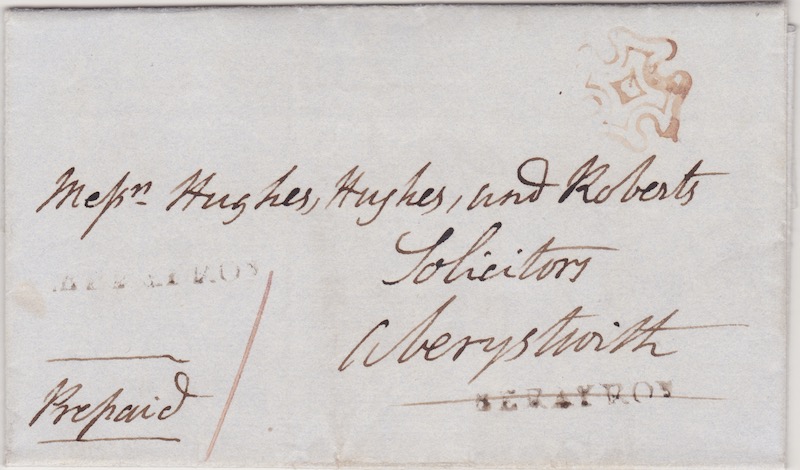 Messrs. Hughes, Hughes, and Roberts
Solicitors
ABERAYRON
Aberystwith
BERAYRON
Prepaid
1